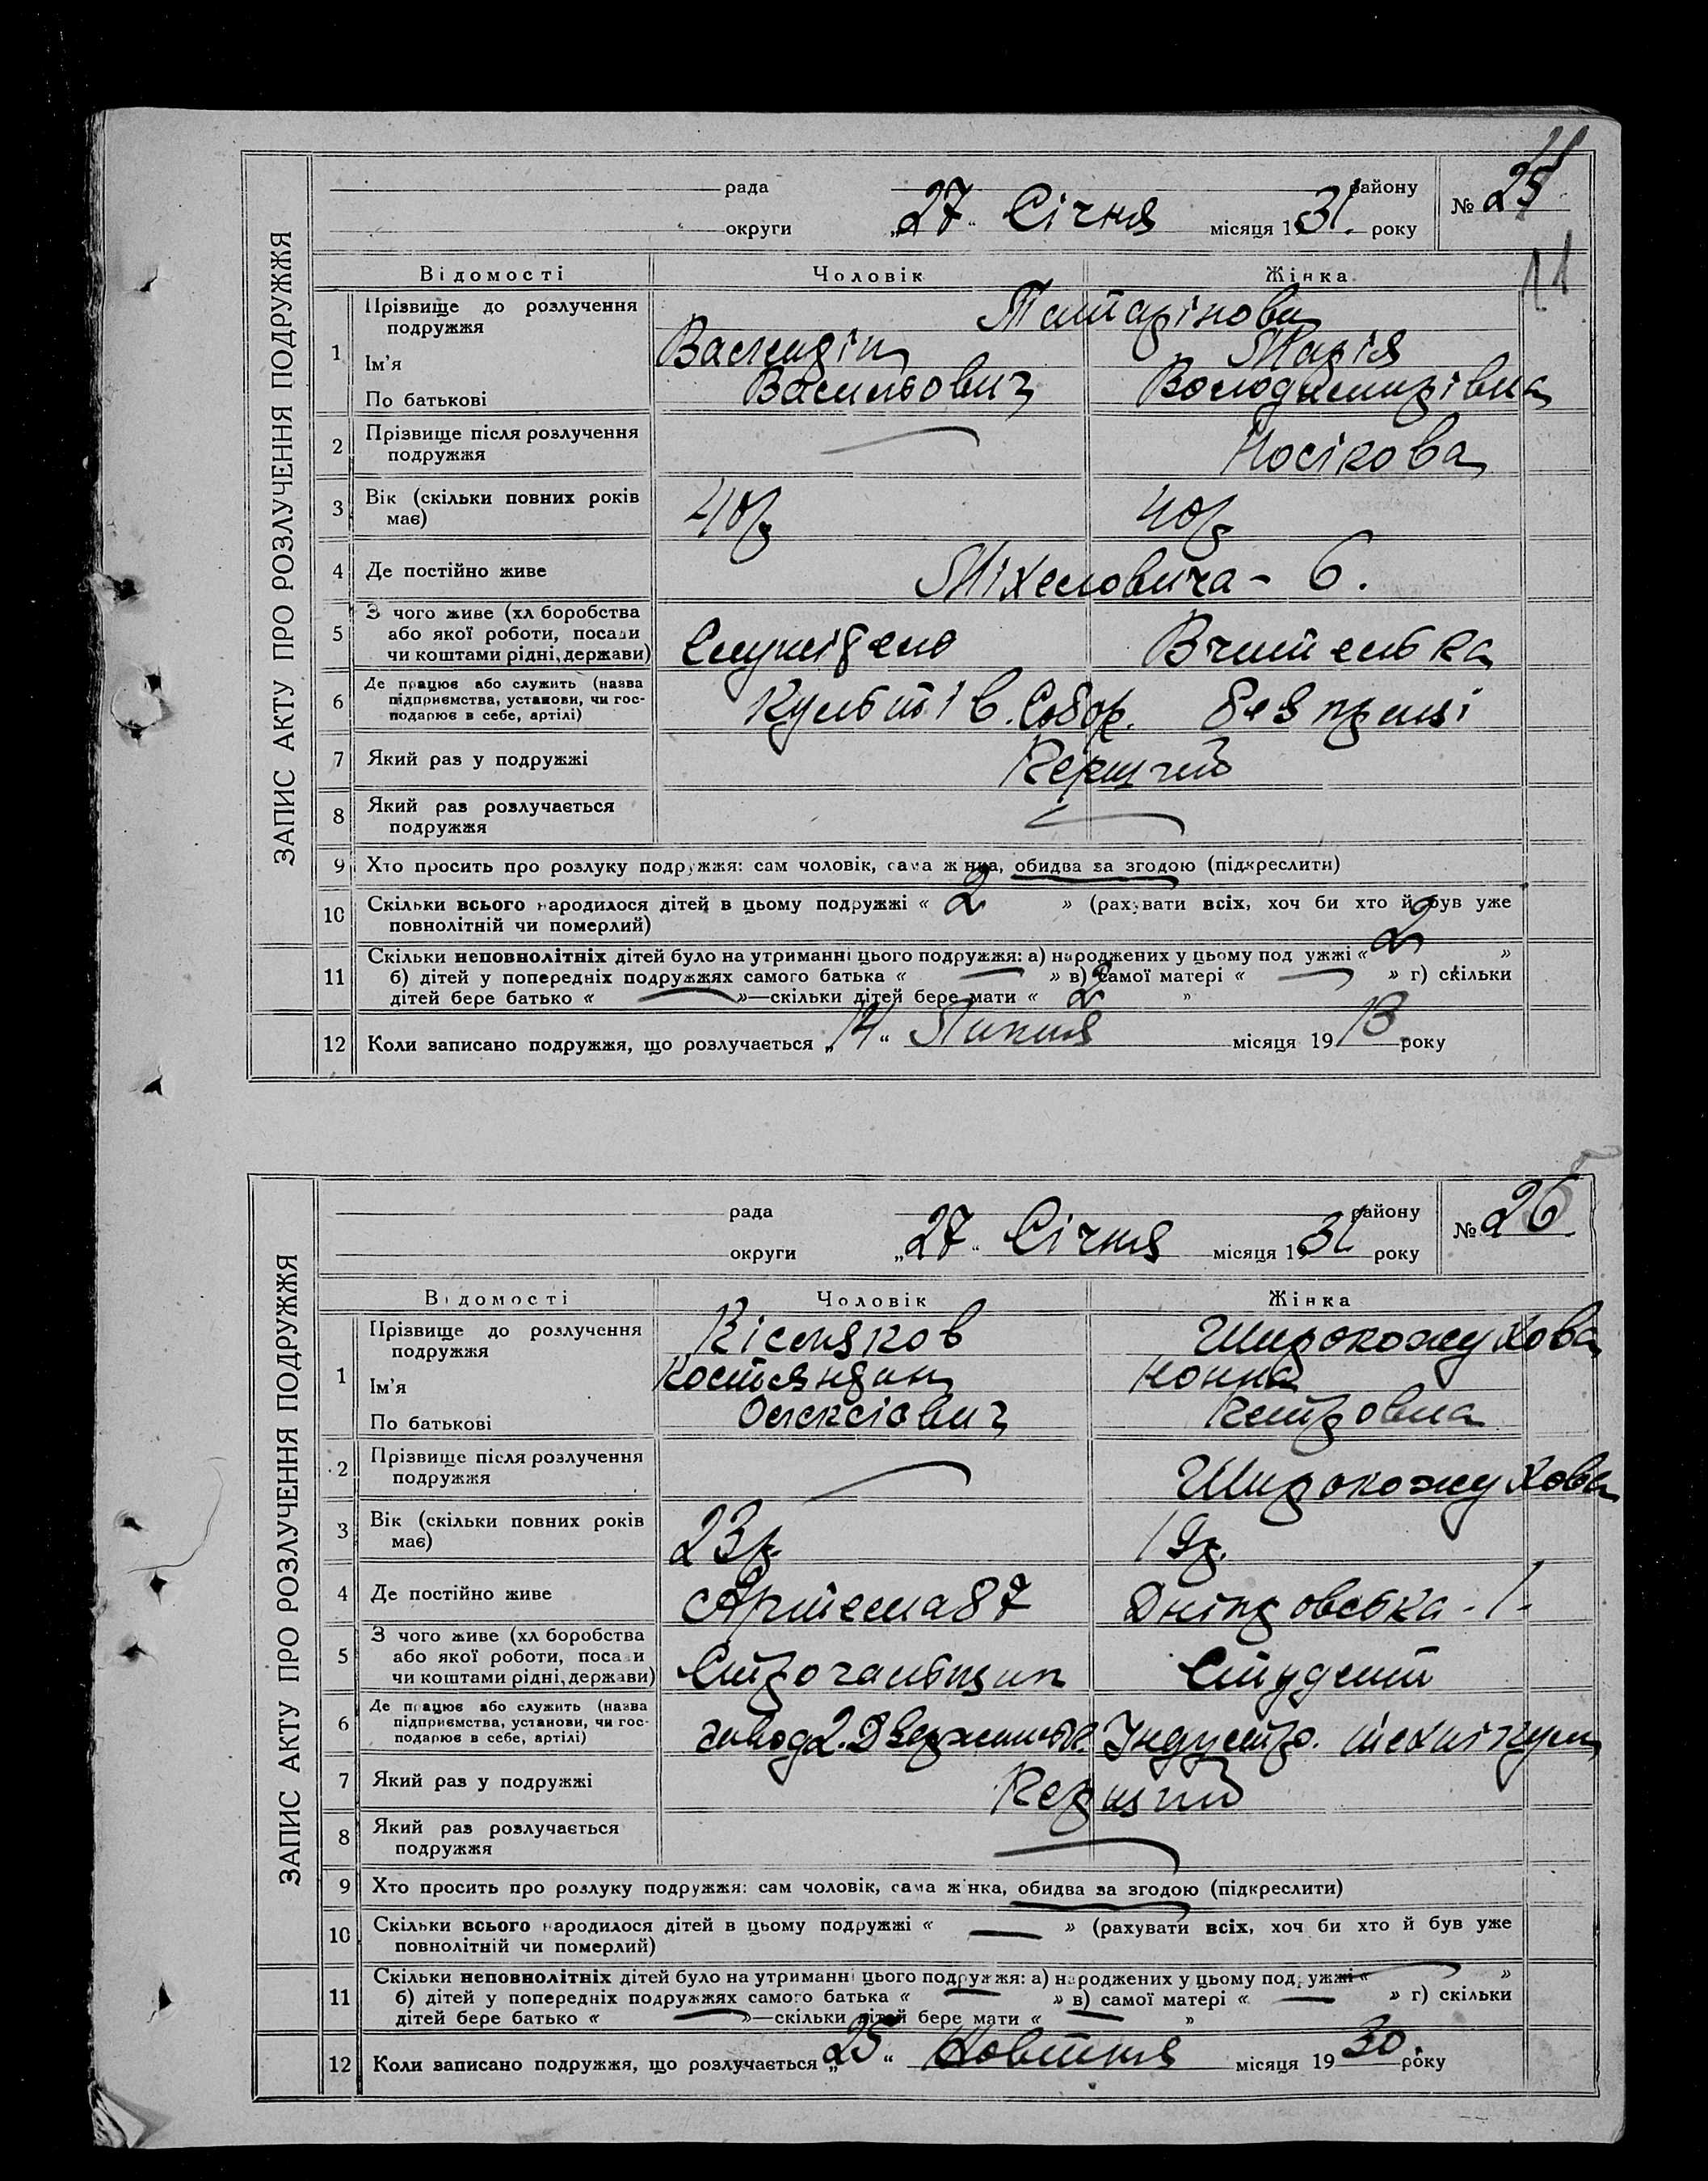 ЗАПИС АКТУ ПРО РОЗЛУЧЕННЯ ПОДРУЖЖЯ
рада района
округи „27“ Січня місяця 1931. року
№ 25
11
Відомості Чоловік Жінка
1 Прізвище до розлучення подружжя Татарінови
Ім'я Марія
По батькові Васильович Володимирівна
2 Прізвище після розлучення подружжя — Носікова
3 Вік (скільки повних років має) 40р 40р
4 Де постійно живе Міхеловича - 6.
5 З чого живе (хліборобства або якої роботи, посади чи коштами рідні, держави) Вчителька
6 Де працює або служить (назва підприємства, установи, чи господарює в себе, артілі) без праці
7 Який раз у подружжі Перший
8 Який раз розлучається подружжя —
9 Хто просить про розлуку подружжя: сам чоловік, сама жінка, обидва за згодою (підкреслити)
10 Скільки всього народилося дітей в цьому подружжі « 2 » (рахувати всіх, хоч би хто й був уже
повнолітній чи померлий)
11 Скільки неповнолітніх дітей було на утриманні цього подружжя: а) народжених у цьому подружжі « 2 »
б) дітей у попередніх подружжях самого батька « — » в) самої матері « — » г) скільки
дітей бере батько « — »—скільки дітей бере мати « 2 »
12 Коли записано подружжя, що розлучається „14“ Липня місяця 1913 року
ЗАПИС АКТУ ПРО РОЗЛУЧЕННЯ ПОДРУЖЖЯ
рада району
округи „27“ Січня місяця 1931 року
№ 26
Відомості Чоловік Жінка
1 Прізвище до розлучення подружжя Кісляков Широкожухова
Ім'я Костяндин Нонна
По батькові Олексіович Петровна
2 Прізвище після розлучення подружжя — Широкожухова
3 Вік (скільки повних років має) 23р. 19р.
4 Де постійно живе Артема 87 Дніпровська - 1 -
5 З чого живе (хліборобства або якої роботи, посади чи коштами рідні, держави) Студент
6 Де працює або служить (назва підприємства, установи, чи господарює в себе, артілі) завод Індустр. технікум
7 Який раз у подружжі Перший
8 Який раз розлучається подружжя —
9 Хто просить про розлуку подружжя: сам чоловік, сама жінка, обидва за згодою (підкреслити)
10 Скільки всього народилося дітей в цьому подружжі « — » (рахувати всіх, хоч би хто й був уже
повнолітній чи померлий)
11 Скільки неповнолітніх дітей було на утриманні цього подружжя: а) народжених у цьому подружжі « — »
б) дітей у попередніх подружжях самого батька « — » в) самої матері « — » г) скільки
дітей бере батько « — »—скільки дітей бере мати « — »
12 Коли записано подружжя, що розлучається „25“ Жовтня місяця 1930. року